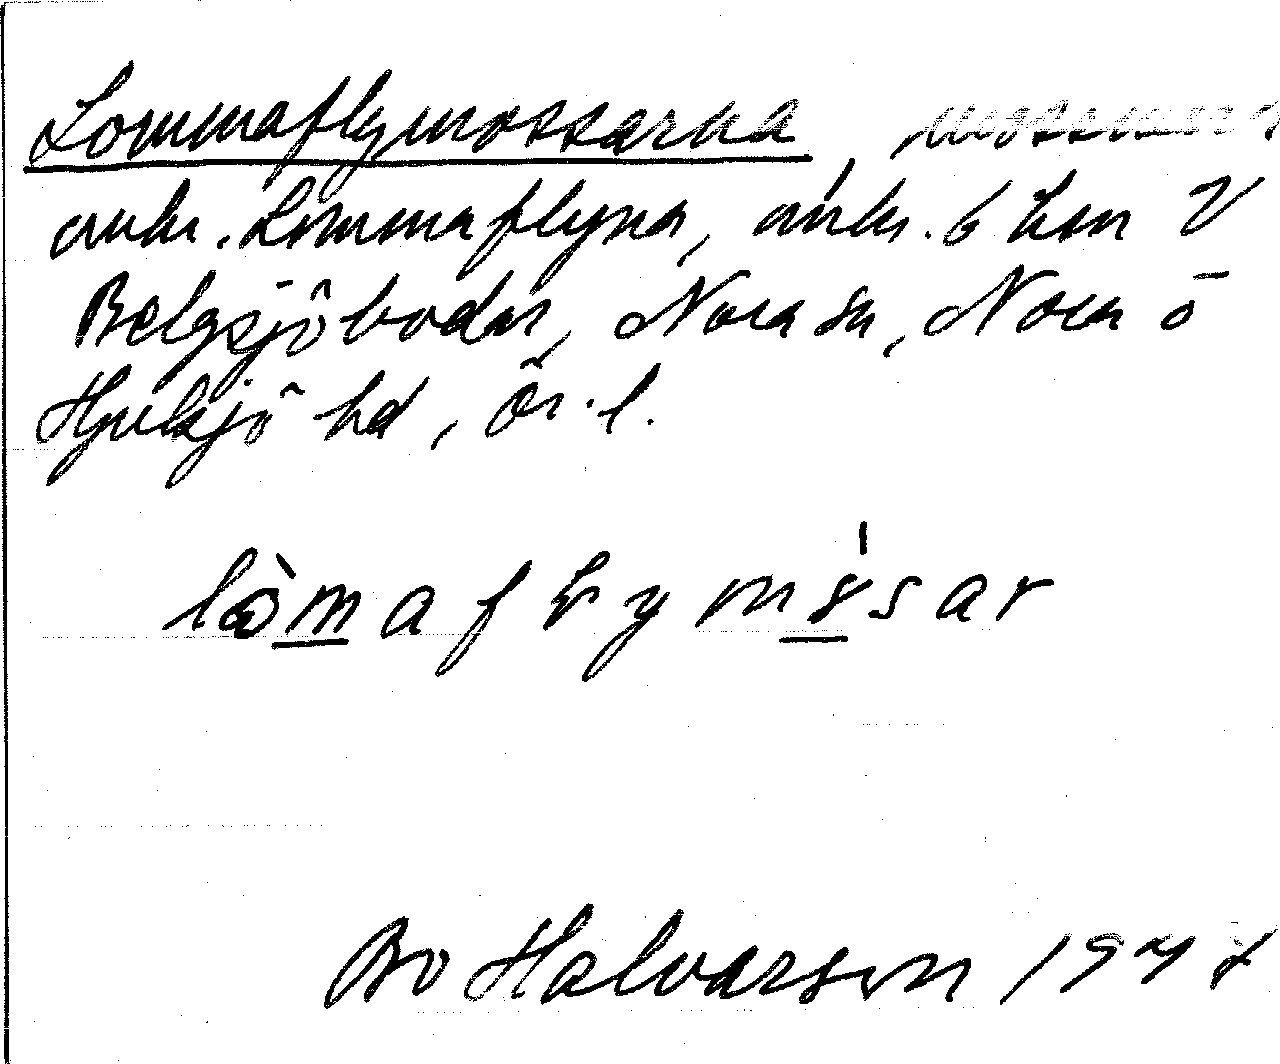 Lommaflymossarna, mossarna
omkr. Lommaflyna, omkr. 6 km V
Belgsjöbodar, Nora sn, Nora o
Hjulsjö hd, Ör. l.
Bo Halvarson 197